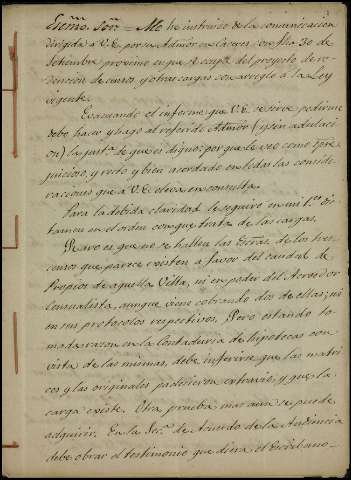 Excmo. Sor. = Me he instruido de la comunicacion
dirigida á V.E. por su Admor en Cáceres con fha 30 de
Setiembre próximo en que se ocupa del proyecto de re-
dencion de censos y otras cargas con arreglo á la Ley
vigente.
Evacuando el informe que V.E. se sirve pedirme
debo hacer y hago al referido Admor (y sin adulaci
on) la justa. de que es digno; porque le veo como
juicioso, y recto y bien acordado en todas las conside
raciones que á V.E. eleva en consulta.
Para la debida claridad le seguiré en mi
tamen en el orden con que trata de las cargas.
Raro es que no se hallen las Escras. de los tres
censos que parece existen á favor del caudal de
propios de aquella Villa, ni en poder del Acreedor
Censualista, aunque viene cobrando dos de ellas; ni
en sus protocolos respectivos. Pero estando to
mada razon en la Contaduria de hipotecas con
vista de las mismas, debe inferirse que las matri
ces y las originales padecieron extravio y que la
carga existe. Otra prueba mas aun se puede
adquirir. En la Sec. de Acuerdo de la Audiencia
debe obrar el testimonio que diera el Escribano